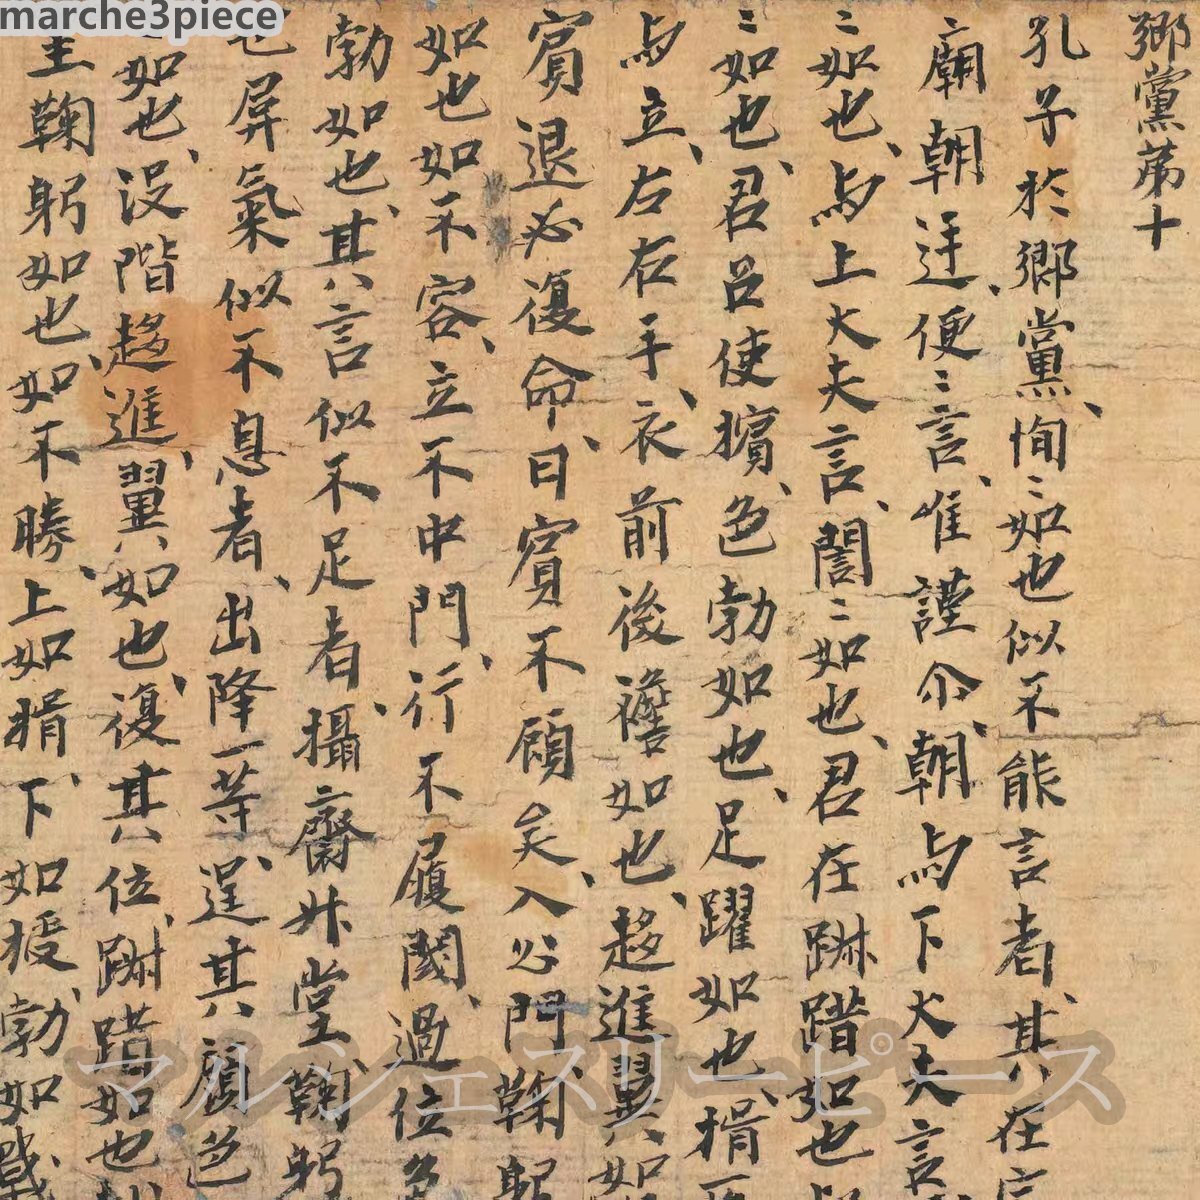 marche3piece
鄉黨苐十
孔子於鄉黨、恂〻如也似不能言者、其在宗
廟朝廷、便〻言、唯謹尒、朝与下大夫言
〻如也、与上大夫言、誾〻如也、君在踧踖如也
〻如也、君召使擯、色勃如也、足躩如也、揖所
与立、左右手、衣前後襜如也、趍進翼如
賔退必復命、曰賔不顧矣、入公門、鞠躬
如也如不容、立不中門、行不履閾、過位色
勃如也、其言似不足者、攝齋升堂、鞠躬
也屏氣似不息者、出降一等、逞其顔色
如也、没階趍進、翼如也、復其位、踧踖如也
圭鞠躬如也、如不勝、上如揖、下如授、勃如戰
マルシェスリーピース